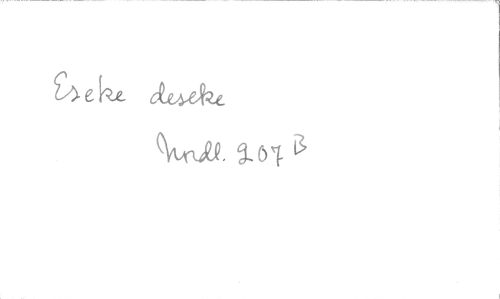 Eseke deseke
Mndl. 207 B